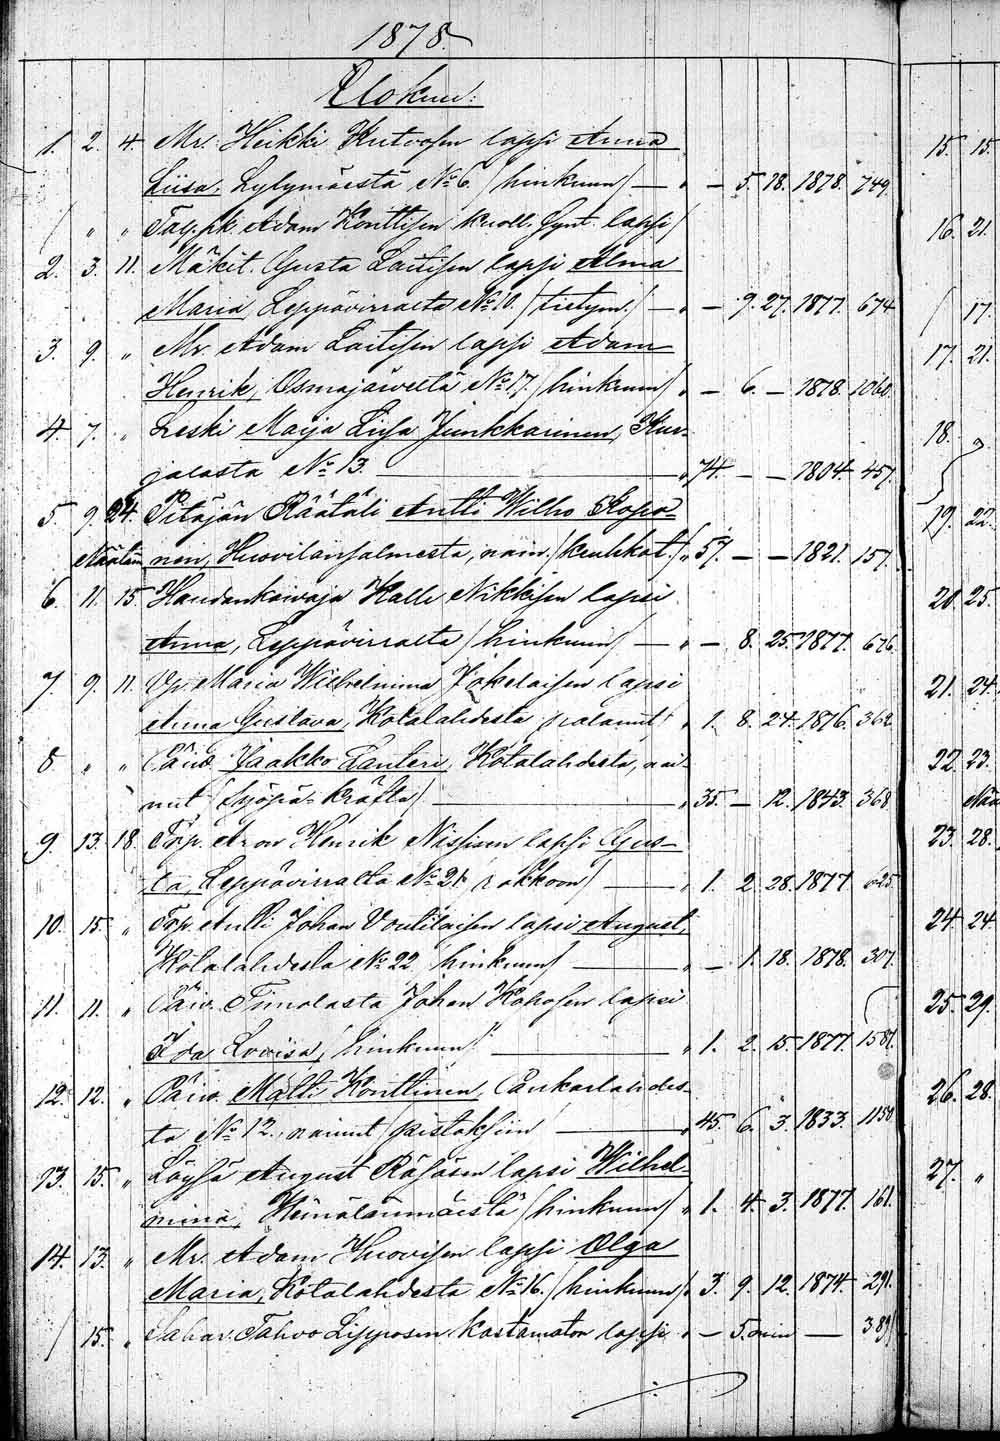 1878.
Elokuu.
1. 2. 4. Mr. Heikki Kutvosen lapsi Anna
Liisa, Lylymäestä No 6. (hinkuun) — " — 5. 18. 1878. 749.
( " " Tay.pk. Adam Konttisen kuoll. synt. lapsi)
2. 3. 11. Mäkit. Gusta Laitisen lapsi Alma
Maria, Leppävirralta No 10. (tietym.) — " — 9. 27. 1877. 674
3. 9. " Mr. Adam Laitisen lapsi Adam
Henrik, Osmajärveltä No 17. (hinkuun) " — 6. — 1878. 1060.
4. 7. " Leski Maija Liisa Junkkarinen, Kur-
jalasta No 13. — " 74. — — 1804. 457.
5. 9. 24. Pitäjän Räätäli Antti Wilho Kopo-
nen, Huovilansalmesta, nain. (keuhkot.) " 57. — — 1821. 157.
6. 11. 15. Haudankaivaja Kalle Nikkisen lapsi
Anna, Leppävirralta (hinkuun) — " — 8. 25. 1877. 676.
7. 9. 11. Yp. Maria Wilhelmina Jokelaisen lapsi
Anna Gustava, Kotalahdesta (palanut) " 1. 8. 24. 1876. 362.
8. " " Päiv. Jaakko Lanteri, Kotalahdesta, nai-
nut (syöpä-kräfta) — " 35. — 12. 1843. 368.
9. 13. 18. Trp. Aron Henrik Nissisen lapsi Gus-
ta, Leppävirralta No 21. (rokkoon) — " 1. 2. 28. 1877. 625.
10. 15. " Trp. Antti Johan Voutilaisen lapsi August,
Kotalahdesta No 22 (hinkuun) — " — 1. 18. 1878. 307.
11. 11. " Päiv. Timolasta Johan Kohosen lapsi
Ida Lovisa, (hinkuun) — " 1. 2. 15. 1877. 1581.
12. 12. " Päiv. Matti Konttinen, Paukarlahdes-
ta No 12., nainut (pistoksiin — " 45. 6. 3. 1833. 1150
13. 15. " Löysä August Räsäsen lapsi Wilhel-
mina, Heinälänmäestä (hinkuun) " 1. 4. 3. 1877. 161.
14. 13. " Mr. Adam Huovisen lapsi Olga
Maria, Kotalahdesta No 16. (hinkuun) " 3. 9. 12. 1874. 291.
( 15. " Sahar. Tahvo Lipposen kastamaton lapsi " — 5. min — 389)
15. 15.
16. 21.
( 17.
17. 21.
18. "
19. 22.
20. 25.
21. 24.
22. 23.
23. 28.
24. 24.
25. 29.
26. 28.
27. "